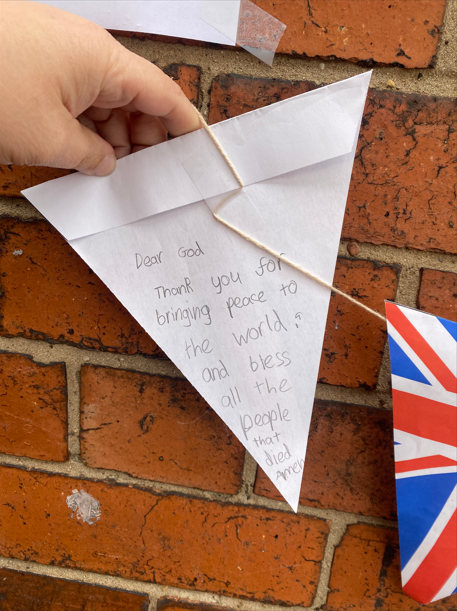 Dear God
Thank you for
bringing peace to
the world
and bless
all the
people
that
died
Amen